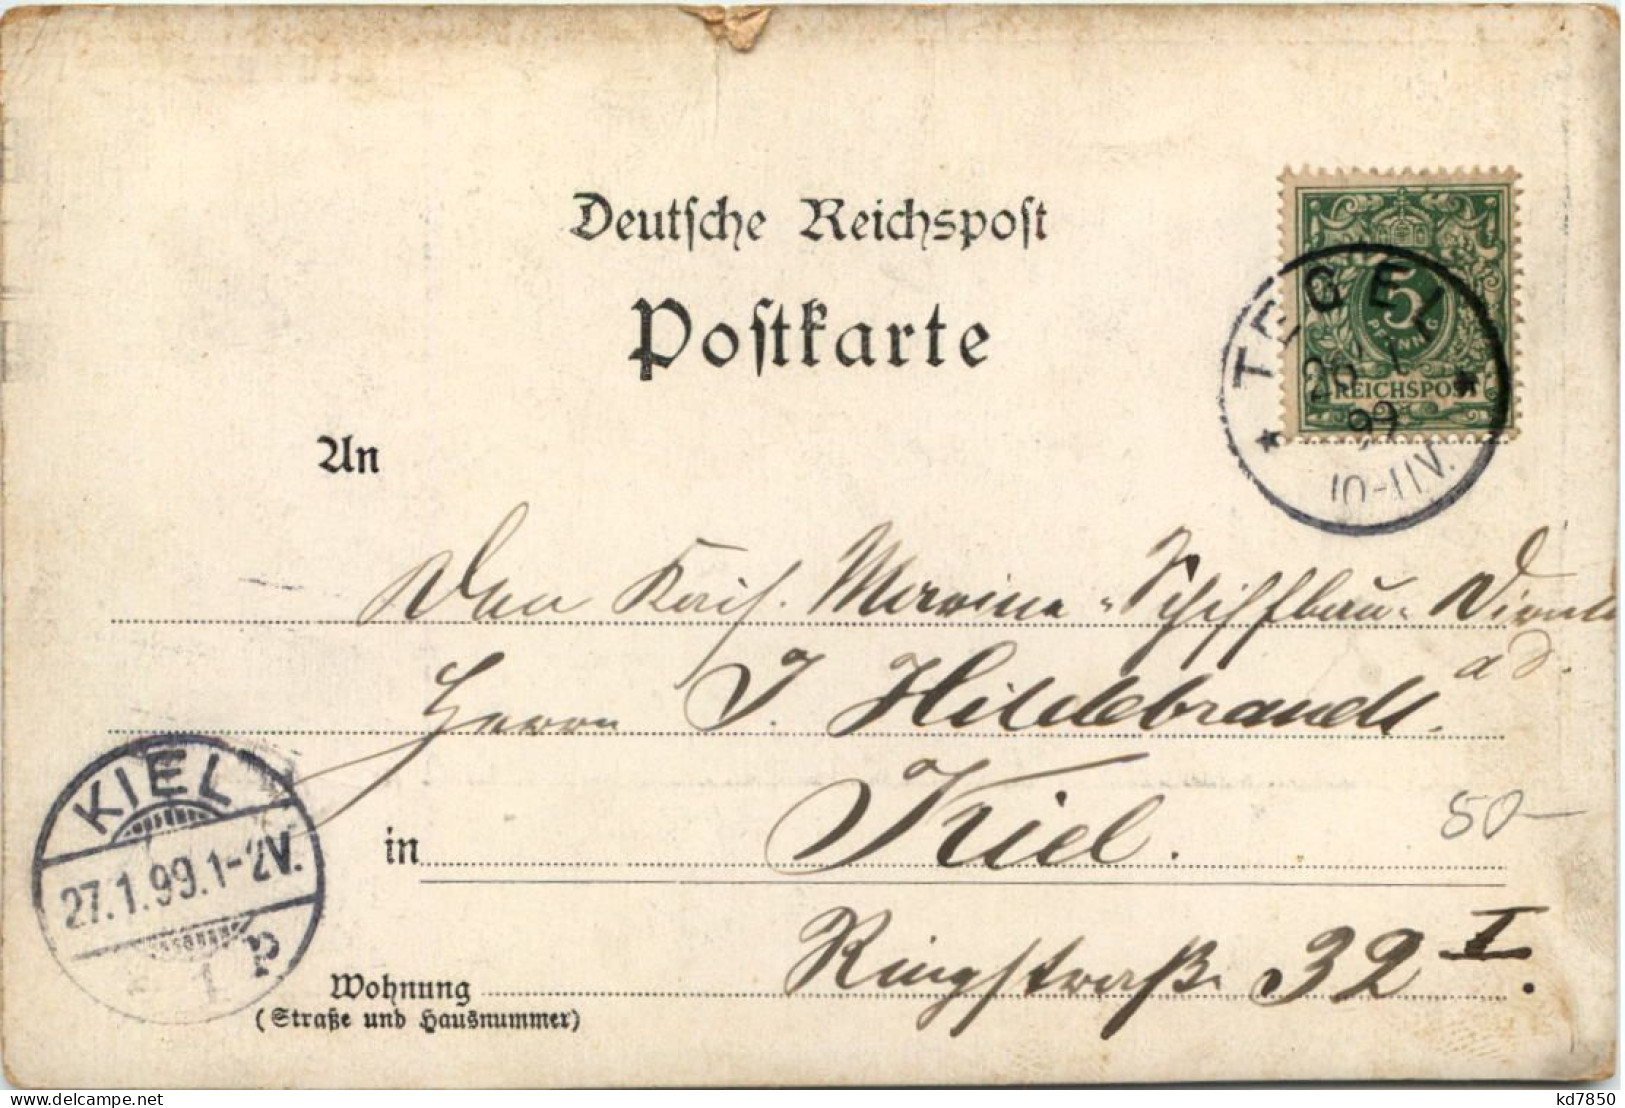 Deutsche Reichspost
Postkarte
5
PFENNIG
REICHSPOST
TEGEL
26 1
99
10-11V.
An
Den Kais. Marine-Schiffbau-Direktor
a D.
Herrn J. Hildebrandt.
in Kiel.
50-
Ringstraße 32 I.
Wohnung
(Straße und Hausnummer)
KIEL
27.1.99.1-2V.
1 P
delcampe.net
kd7850